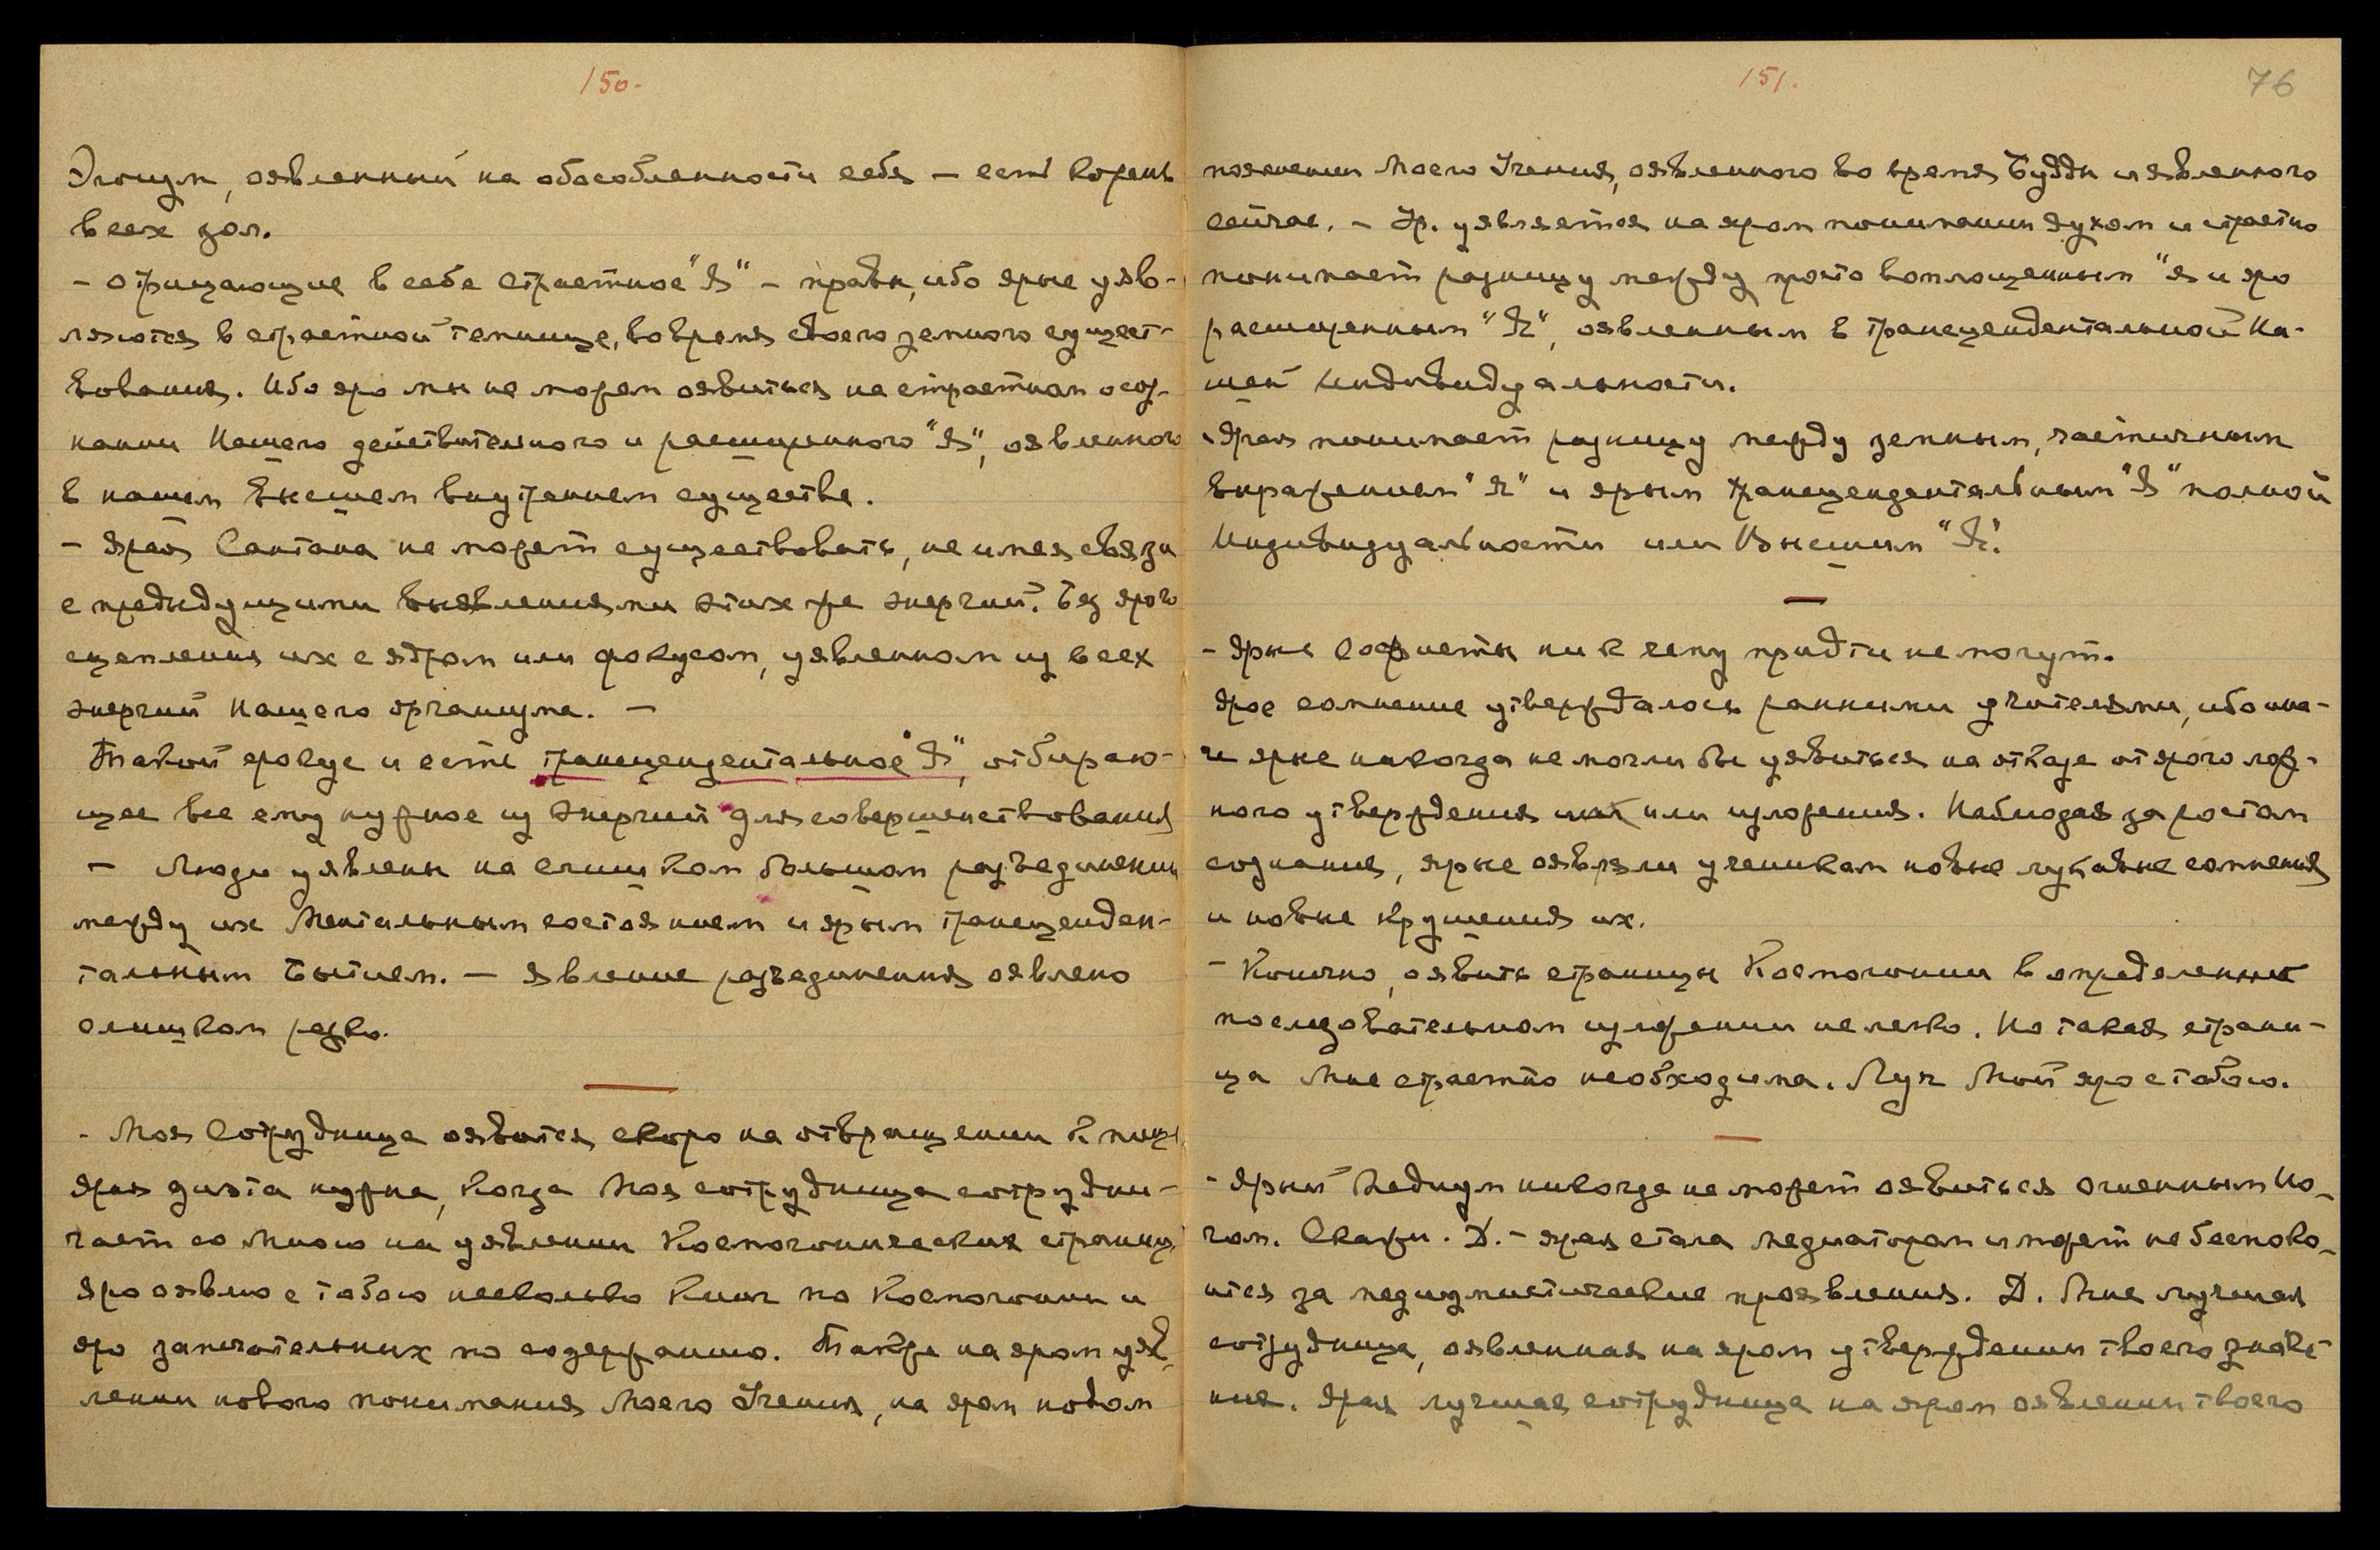 150.
Эгоизм, оявленный на обособленности себя — есть корень
всех зол.
— отрицающие в себе страстное "Я" — правы, ибо ярые уяв-
ляются в страстной темнице, во время своего земного сущест-
вования. Ибо яро мы не можем оявиться на страстном осоз-
нании Нашего действительного и расширенного "Я", оявленного
в нашем высшем внутреннем существе.
— Ярая Сантана не может существовать, не имея связи
с предыдущими выявлениями этих же энергий. Без ярого
сцепления их с ядром или фокусом, уявленном из всех
энергий Нашего организма. —
Такой фокус и есть трансцендентальное "Я", отбираю-
щее все ему нужное из энергий для совершенствования
— Люди уявлены на слишком большом разъединении
между их Ментальным состоянием и ярым трансценден-
тальным Бытием. — явление разъединения оявлено
слишком резко.
- Моя Сотрудница оявится скоро на отвращении к пище
Ярая диэта нужна, когда Моя сотрудница сотрудни-
чает со Мною на уявлении Космогонических страниц.
Яро оявлю с тобою несколько Книг по Космогонии и
яро замечательных по содержанию. Также на яром уяв-
лении нового понимания Моего Учения, на яром новом
151.
76
пояснении Моего Учения, оявленного во время Будды и явленного
сейчас. — Ур. уявляется на яром понимании духом и страстно
понимает разницу между просто воплощенным "я и яро
расширенным "Я", оявленным в трансцендентальной На-
шей Индивидуальности.
Ярая понимает разницу между земным, частичным
выражением "Я" и ярым трансцендентальным "Я" полной
Индивидуальности или Высшим "Я".
- Ярые софисты ни к чему придти не могут.
Ярое сомнение утверждалось ранними учителями, ибо ина-
че ярые никогда не могли бы уявиться на отказе от ярого лож-
ного утверждения или изложения. Наблюдая за ростом
сознания, ярые оявляли ученикам новые лукавые сомнения
и новые крушения их.
- Конечно, оявить страницы Космогонии в определенном
последовательном изложении не легко. Но такая страни-
ца Мне страстно необходима. Луч Мой яро с тобою.
- Ярый Медиум никогда не может оявиться огненным Йо-
гом. Скажи. Д. — ярая стала медиатором и может не беспоко-
ится за медиумистические проявления. Д. Мне лучшая
сотрудница, оявленная на яром утверждении твоего
ние. Ярая лучшая сотрудница на яром оявлении твоего